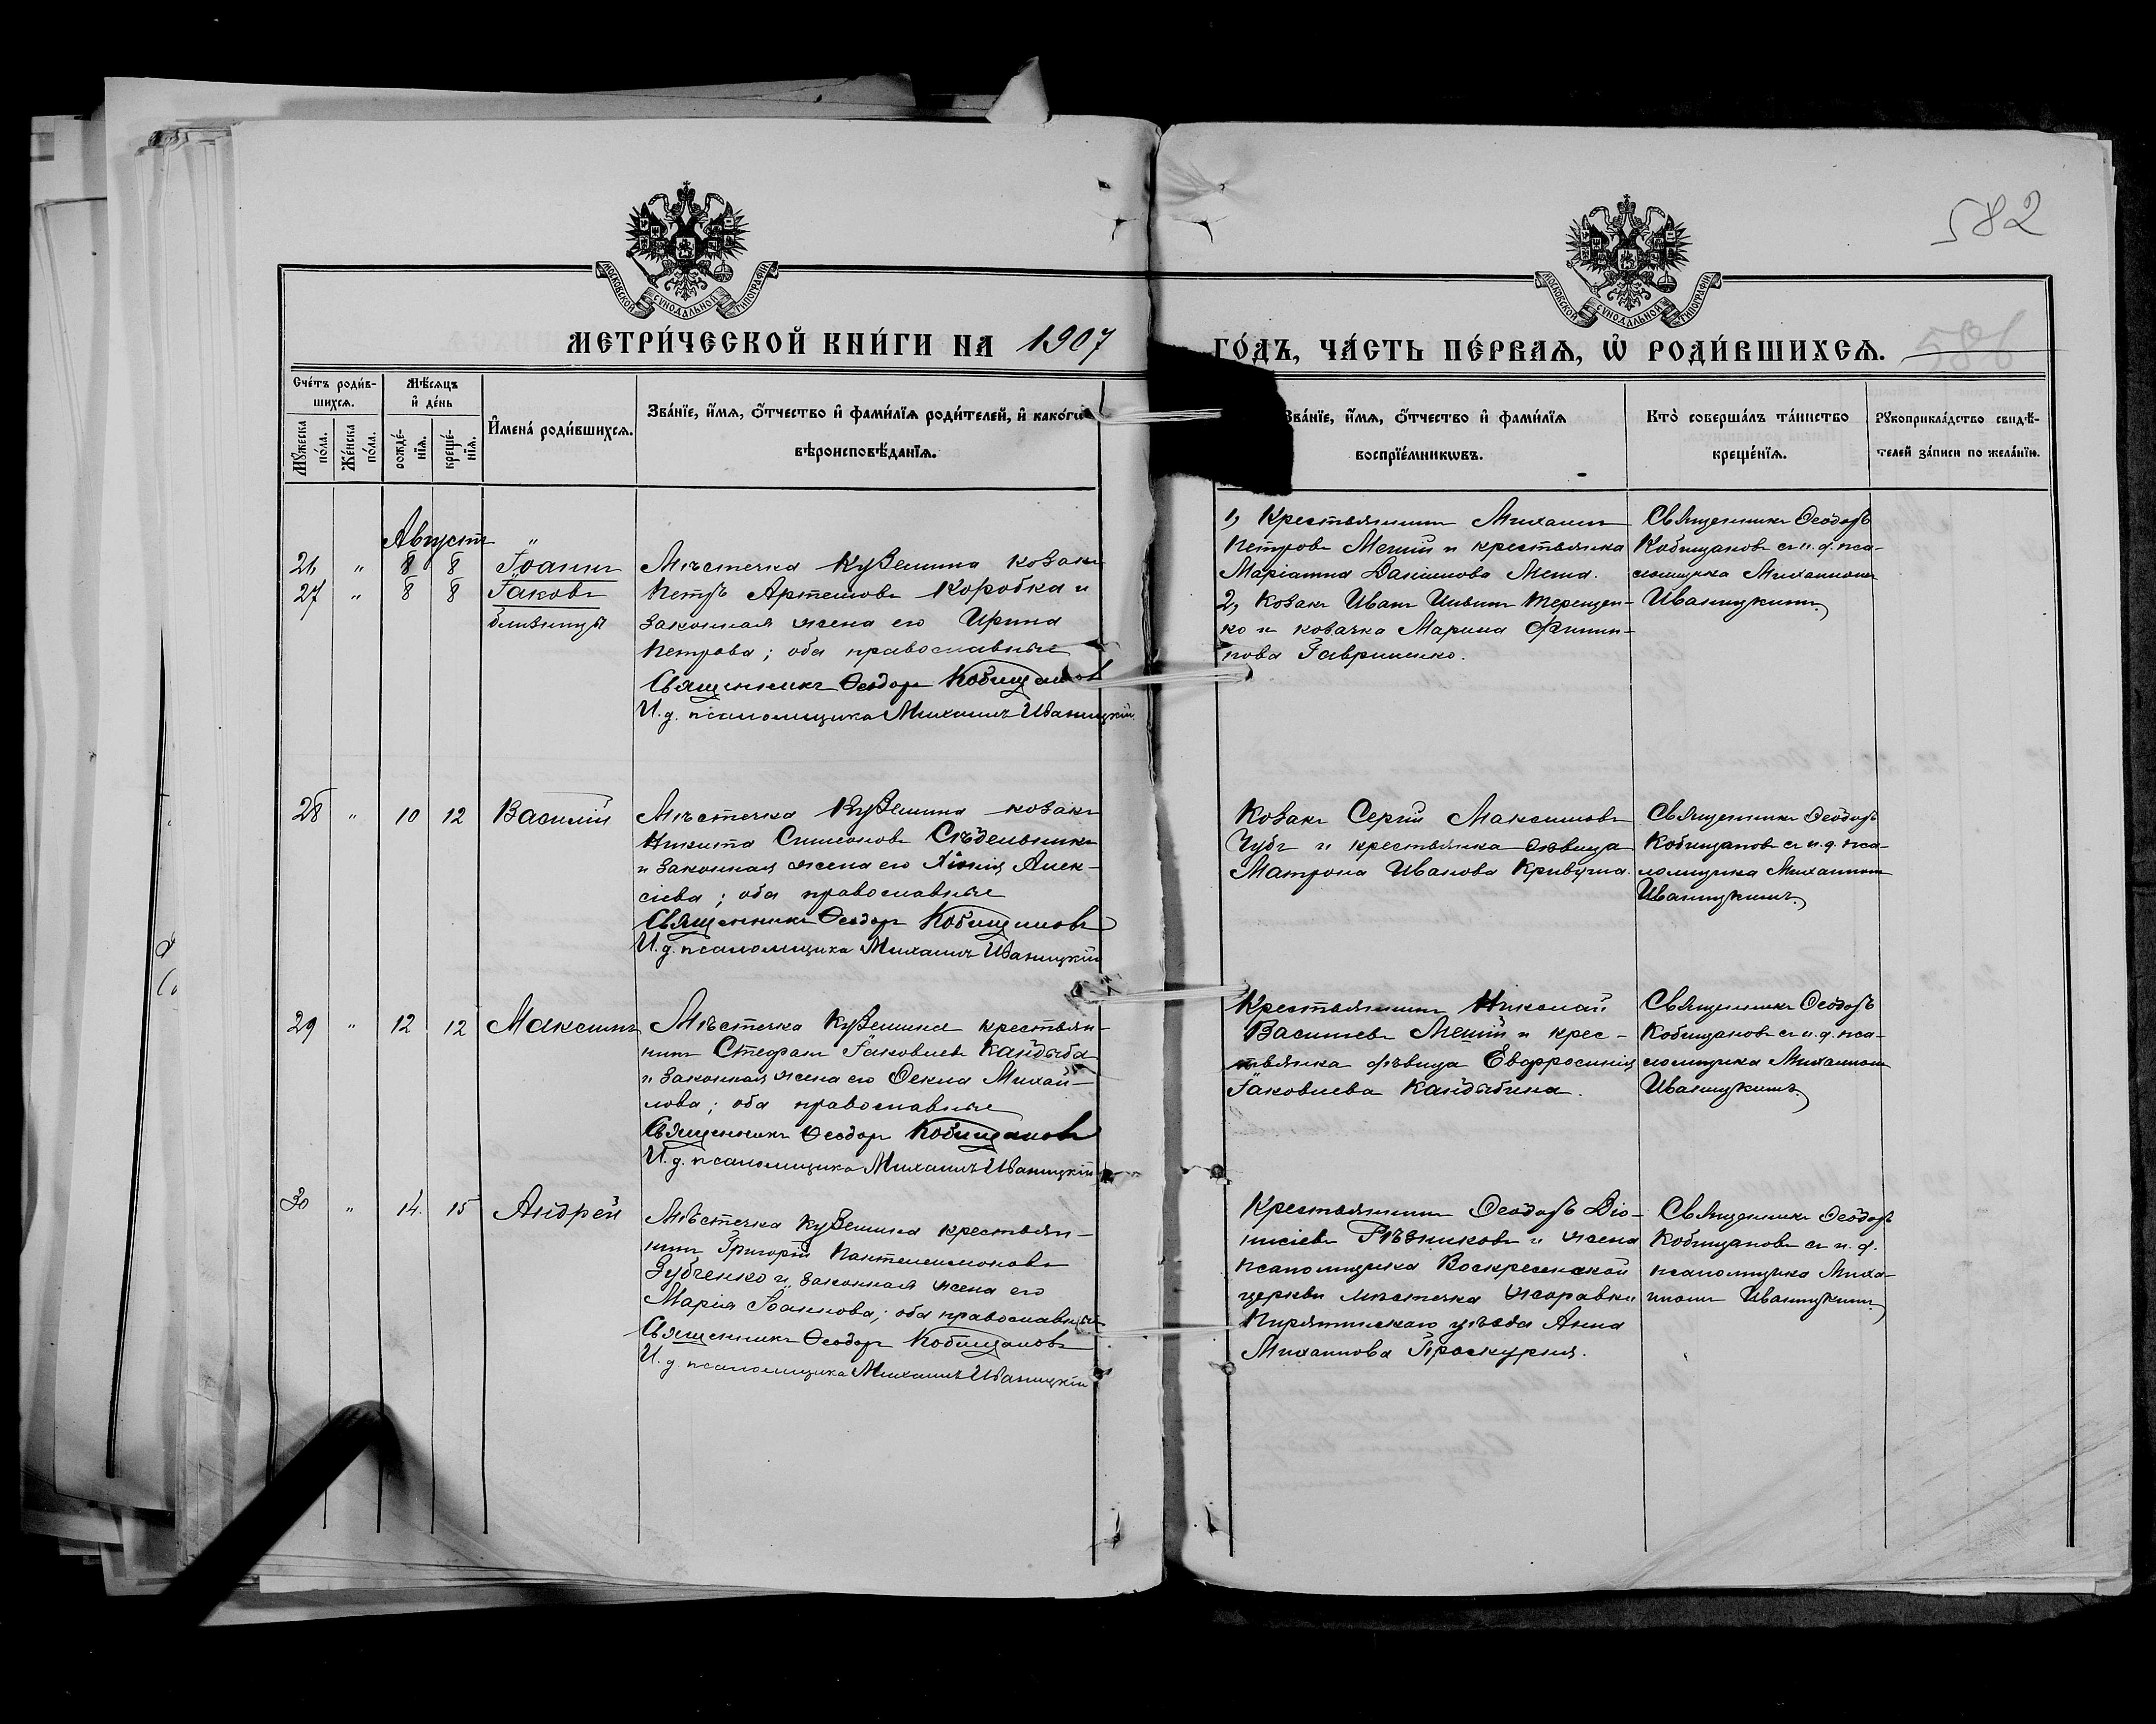 582
МОСКОВСКОЙ СѴНОДАЛЬНОЙ ТИПОГРАФІИ.
МОСКОВСКОЙ СѴНОДАЛЬНОЙ ТИПОГРАФІИ.
МЕТРИ́ЧЕСКОЙ КНИ́ГИ НА 1907
ГО́ДЪ, ЧА́СТЬ ПЕ́РВАѦ, Ѡ҆ РОДИ́ВШИХСѦ.
586
Сче́тъ роди́в-
шихсѧ.
Мꙋ́жеска по́ла.
Же́нска по́ла.
Мѣ́сѧцъ
и҆ де́нь
рожде́-
нїѧ.
креще́-
нїѧ.
И҆мена̀ роди́вшихсѧ.
Зва́нїе, и҆́мѧ, ѻ҆́тчество и҆ фами́лїѧ роди́телей, и҆ како́гѡ
вѣроисповѣ́данїѧ.
Зва́нїе, и҆́мѧ, ѻ҆́тчество и҆ фами́лїѧ
воспрїе́мникѡвъ.
Кто̀ соверша́лъ та́инство
креще́нїѧ.
Рꙋкоприкла́дство свидѣ́-
телей за́писи по жела́нїю.
Августъ
26 " 8 8 Іоаннъ
27 " 8 8 Іаковъ
близнецы
Мѣстечка Куземина козакъ
Петръ Артемовъ Коробка и
законная жена его Ирина
Петрова; оба православные
Священникъ Ѳеодоръ Кобищановъ
И. д. псаломщика Михаилъ Иваницкій
1, Крестьянинъ Михаилъ
Петровъ Мешій и крестьянка
Маріанна Данилова Меша.
2, Козакъ Иванъ Терещен-
ко и козачка Марина Филип-
пова Гавриленко.
Священникъ Ѳеодоръ
Кобищановъ съ и. д. пса-
ломщика Михаиломъ
Иваницкимъ.
28 " 10 12 Василій
Мѣстечка Куземина козакъ
Никита Симоновъ Сѣдельникъ
и законная жена его Хіонія Алек-
сіева; оба православные
Священникъ Ѳеодоръ Кобищановъ
И. д. псаломщика Михаилъ Иваницкій
Козакъ Сергій Максимовъ
Чубъ и крестьянка дѣвица
Матрона Иванова Кривучка.
Священникъ Ѳеодоръ
Кобищановъ съ и. д. пса-
ломщика Михаиломъ
Иваницкимъ.
29 " 12 12 Максимъ
Мѣстечка Куземина крестьян-
инъ Стефанъ Іаковлевъ Кандыба
и законная жена его Ѳекла Михай-
лова; оба православные
Священникъ Ѳеодоръ Кобищановъ
И. д. псаломщика Михаилъ Иваницкій
Крестьянинъ Николай
Васильевъ Мешій и крес-
тьянка дѣвица Евфросинія
Іаковлева Кандыбина.
Священникъ Ѳеодоръ
Кобищановъ съ и. д. пса-
ломщика Михаиломъ
Иваницкимъ.
30 " 14 15 Андрей
Мѣстечка Куземина крестьян-
инъ Григорій Пантелеимоновъ
Зубченко и законная жена его
Марія Іоаннова; оба православные
Священникъ Ѳеодоръ Кобищановъ
И. д. псаломщика Михаилъ Иваницкій
Крестьянинъ Ѳеодоръ Діо-
нисіевъ Рѣзниковъ и жена
псаломщика Воскресенской
церкви мѣстечка Журавки
Пирятинскаго уѣзда Анна
Михаилова Проскурня.
Священникъ Ѳеодоръ
Кобищановъ съ и. д.
псаломщика Миха-
иломъ Иваницкимъ.